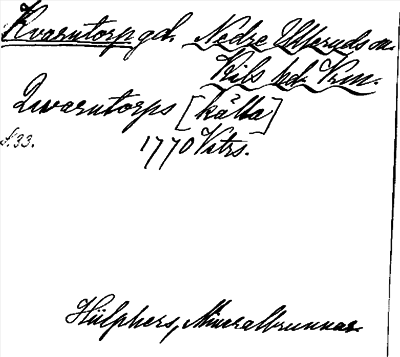 Kvarntorp gd. Nedre Ulleruds sn.
Kils hd. Vrm.
Qwarntorps [källa]
s. 33. 1770 Vstrs.
Hülphers, Mineralbrunnar